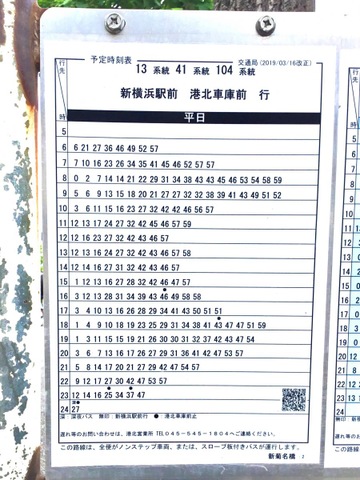 予定時刻表
交通局(2019/03/16改正)
13 系統 41 系統 104 系統
行先
新横浜駅前 港北車庫前 行
時
平日
5
6 6 21 27 36 46 49 52 57
7 7 10 16 23 26 34 35 41 45 46 52 57 57
8 0 2 7 14 14 15 21 22 29 31 34 38 43 43 45 46 53 54 58 59
9 5 6 9 13 15 18 20 21 27 27 32 32 38 39 41 43 49 51 52
10 3 6 11 15 16 23 27 32 42 42 46 56 57
11 12 13 17 24 27 32 42 45 46 57 59
12 12 16 23 27 32 42 43 46 57
13 12 13 16 24 27 32 42 43 46 57 58
14 12 14 16 27 31 32 42 46 57
15 1 12 13 16 27 28 32 42 46 47 57
16 3 12 13 28 31 34 39 43 46 49 58 58
17 3 4 10 16 21 23 28 29 34 41 43 50 51 51
18 1 4 9 10 18 19 23 25 29 31 34 38 41 43 47 47 51 59
19 1 3 11 15 15 19 21 26 30 30 31 32 37 42 43 47 54
20 2 2 6 7 13 16 17 26 27 29 31 36 41 42 47 53 57
21 5 8 14 17 20 21 27 27 29 42 57 57
22 9 12 17 27 30 42 47 53 57
23 12 14 16 25 34 37 47
深
24 27
深 深夜バス 無印 新横浜駅前行 ● 港北車庫前止
遅れ等のお問い合わせは、港北営業所 TEL045-545-1804へご連絡ください。
この路線は、全便がノンステップ車両、または、スロープ板付きバスが運行します。
新菊名橋